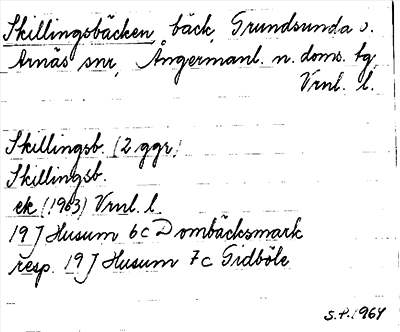 Skillingsbäcken, bäck, Grundsunda o.
Arnäs snr, Ångermanl. n. doms. tg,
Vrnl. l.
Skillingsb. (2 ggr)
Skillingsb.
ek (1963) Vrnl. l.
19 J Husum 6c Dombäcksmark
resp. 19 J Husum 7c Gidböle
S.P. 1964